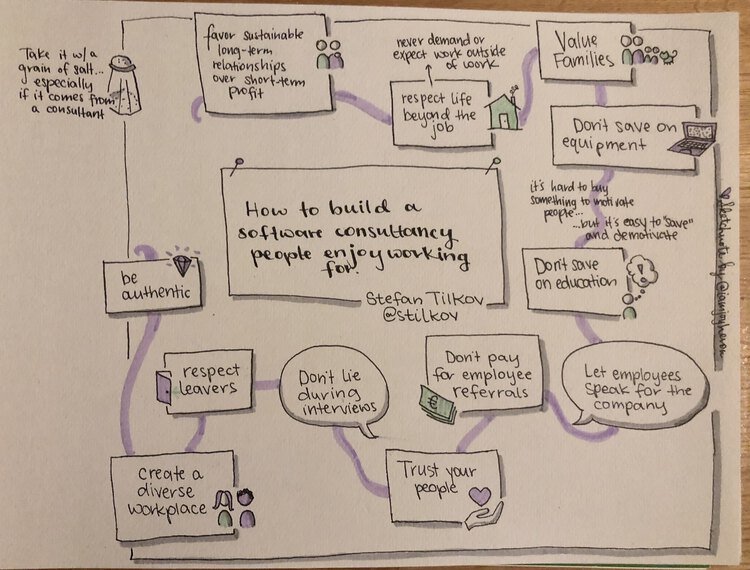 Take it w/a
grain of salt...
especially
if it comes from
a consultant
favor sustainable
long-term
relationships
over short-term
profit
never demand or
expect work outside
of work
respect life
beyond the
job
Value
Families
Don't save on
equipment
it's hard to buy
something to motivate
people...
...but it's easy to "save"
and demotivate
Don't save
on education
Let employees
speak for the
company
Don't pay
for employee
referrals
€
Trust your
people
Don't lie
during
interviews
respect
leavers
create a
diverse
workplace
be
authentic
How to build a
software consultancy
people enjoy working
for.
Stefan Tilkov
@stilkov
Sketchnote by @iamjoyheron